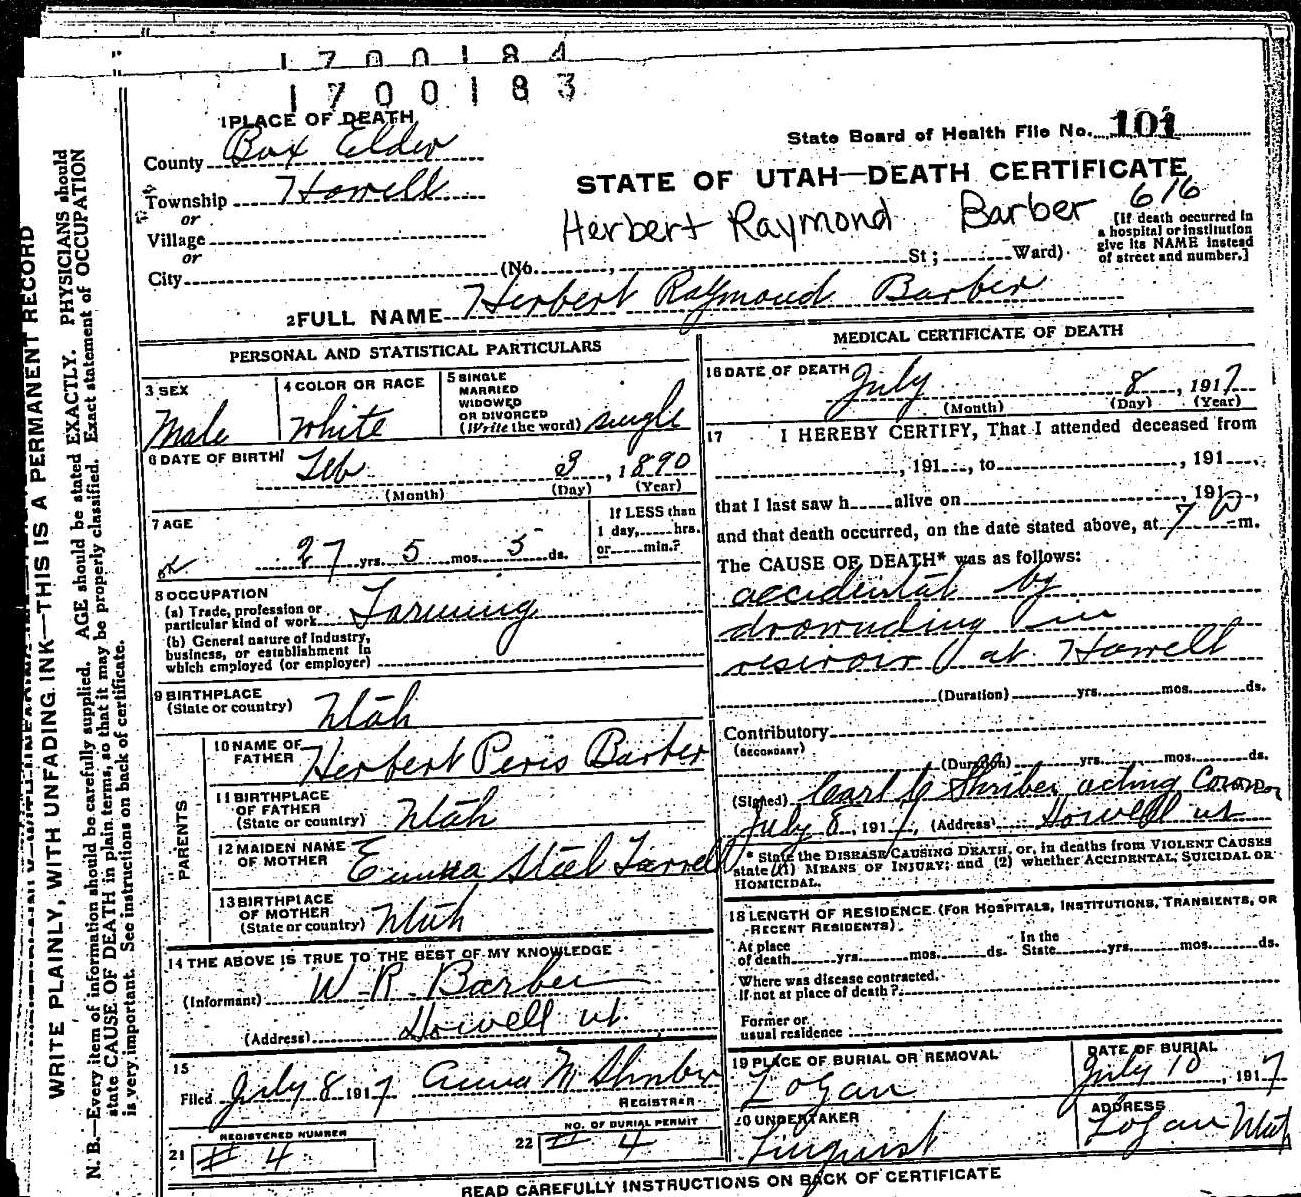 1700184
1700183
1 PLACE OF DEATH
County Box Elder
Township Howell
or
Village
or
City
State Board of Health File No. 101
STATE OF UTAH—DEATH CERTIFICATE
616
Herbert Raymond Barber
[If death occurred in
a hospital or institution
give its NAME instead
of street and number.]
(No. , St ; Ward)
2 FULL NAME Herbert Raymond Barber
PERSONAL AND STATISTICAL PARTICULARS
3 SEX
Male
4 COLOR OR RACE
White
5 SINGLE
MARRIED
WIDOWED
OR DIVORCED
(Write the word) single
6 DATE OF BIRTH
Feb 3, 1890
(Month) (Day) (Year)
7 AGE
27 yrs. 5 mos. 5 ds.
If LESS than
1 day, hrs.
or min.?
8 OCCUPATION
(a) Trade, profession or
particular kind of work Farming
(b) General nature of Industry,
business, or establishment in
which employed (or employer)
9 BIRTHPLACE
(State or country) Utah
PARENTS
10 NAME OF
FATHER Herbert Peris Barber
11 BIRTHPLACE
OF FATHER
(State or country) Utah
12 MAIDEN NAME
OF MOTHER Emma Steel Farrell
13 BIRTHPLACE
OF MOTHER
(State or country) Utah
14 THE ABOVE IS TRUE TO THE BEST OF MY KNOWLEDGE
(Informant) W. R. Barber
(Address) Howell ut.
15
Filed July 8 1917 Anna M Shriber
REGISTRAR
REGISTERED NUMBER
21 # 4
NO. OF BURIAL PERMIT
22 # 4
MEDICAL CERTIFICATE OF DEATH
16 DATE OF DEATH July 8, 1917
(Month) (Day) (Year)
17 I HEREBY CERTIFY, That I attended deceased from
, 191 , to , 191 ,
that I last saw h alive on , 191 ,
and that death occurred, on the date stated above, at 7 P m.
The CAUSE OF DEATH* was as follows:
accidental by
drownding in
resirvoir at Howell
(Duration) yrs. mos. ds.
Contributory
(SECONDARY)
(Duration) yrs. mos. ds.
(Signed) Carl C Shriber acting Coroner
July 8, 1917, (Address) Howell ut
* State the DISEASE CAUSING DEATH, or, in deaths from VIOLENT CAUSES
state (1) MEANS OF INJURY; and (2) whether ACCIDENTAL, SUICIDAL OR
HOMICIDAL.
18 LENGTH OF RESIDENCE (FOR HOSPITALS, INSTITUTIONS, TRANSIENTS, OR
RECENT RESIDENTS).
At place
of death yrs. mos. ds.
In the
State yrs. mos. ds.
Where was disease contracted.
If not at place of death?
Former or
usual residence
19 PLACE OF BURIAL OR REMOVAL
Logan
DATE OF BURIAL
July 10, 1917
20 UNDERTAKER
Linquist
ADDRESS
Logan Utah
READ CAREFULLY INSTRUCTIONS ON BACK OF CERTIFICATE
WRITE PLAINLY, WITH UNFADING INK—THIS IS A PERMANENT RECORD
N. B.—Every item of information should be carefully supplied. AGE should be stated EXACTLY. PHYSICIANS should
state CAUSE OF DEATH in plain terms, so that it may be properly classified. Exact statement of OCCUPATION
is very important. See instructions on back of certificate.